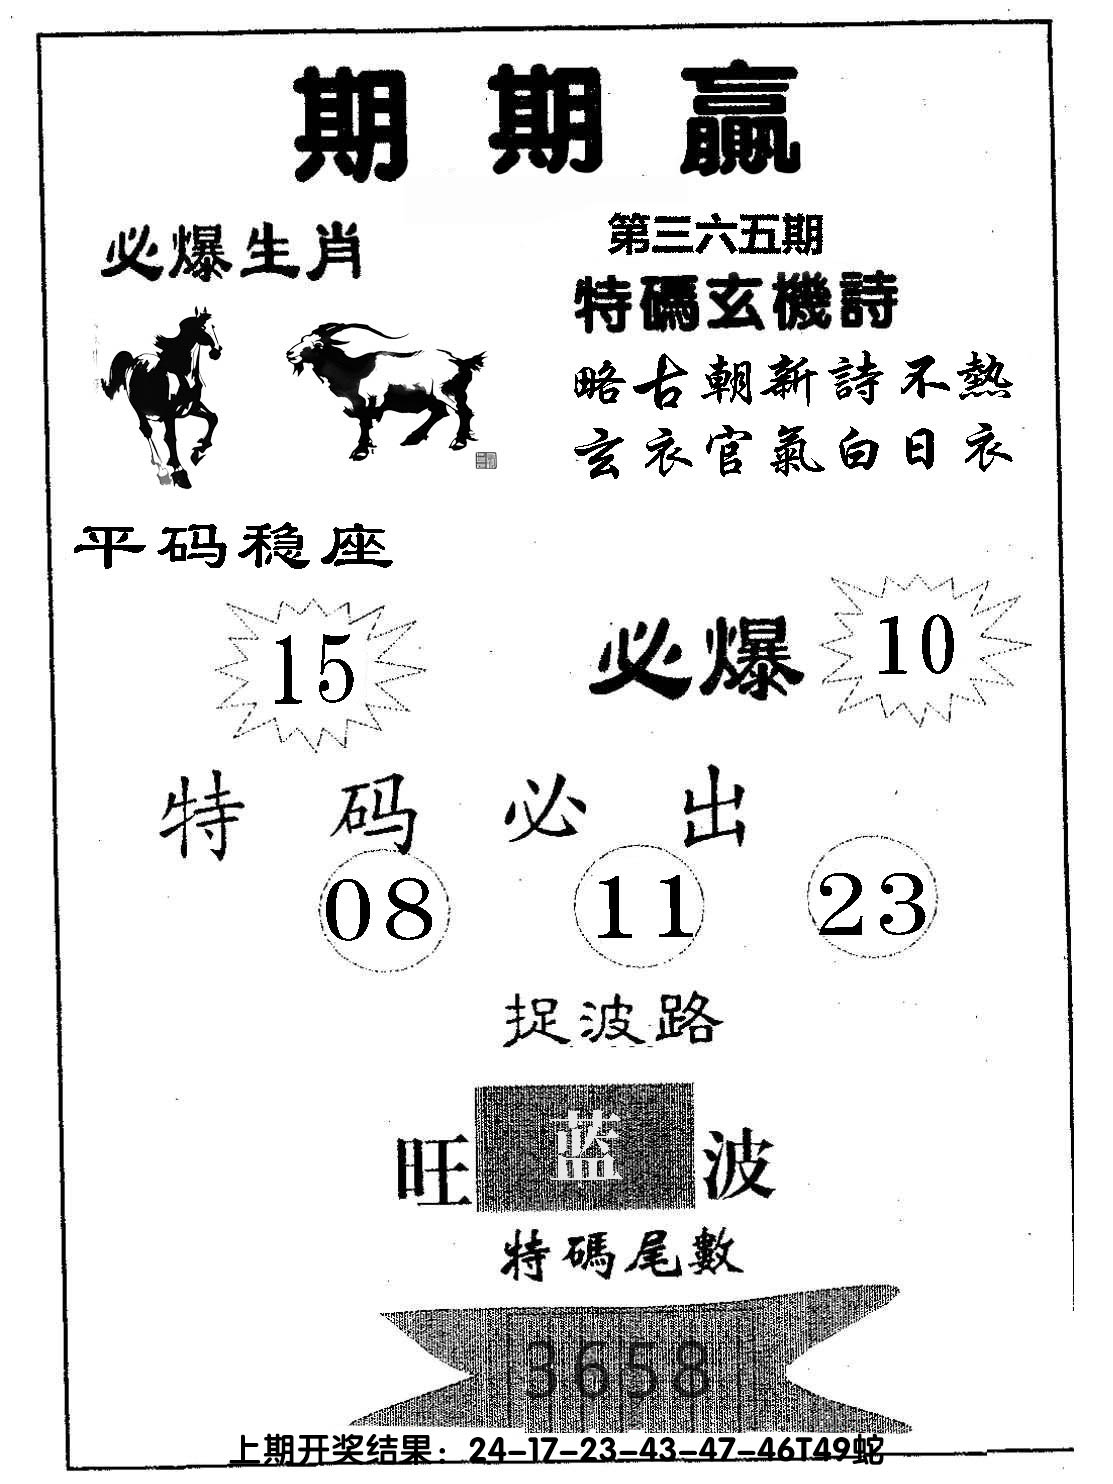 期期赢
必爆生肖
第三六五期
特碼玄機詩
略古朝新詩不熱
玄衣官氣白日衣
平码稳座
15
必爆 10
特码必出
08 11 23
捉波路
旺蓝波
特碼尾數
3658
上期开奖结果：24-17-23-43-47-46T49蛇